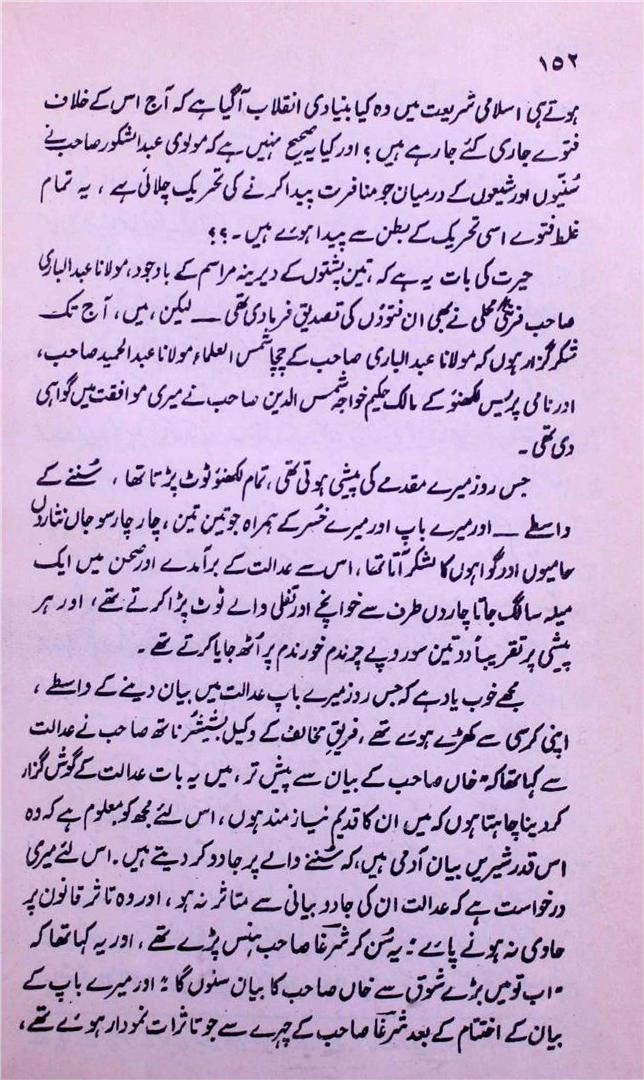 ۱۵۲
ہوتے ہی اسلامی شریعت میں وہ کیا بنیادی انقلاب آگیا ہے کہ آج اس کے خلاف
فتوے جاری کئے جا رہے ہیں؟ اور کیا یہ صحیح نہیں ہے کہ مولوی عبدالشکور صاحب نے
سُنّیوں اور شیعوں کے درمیان جو منافرت پیدا کرنے کی تحریک چلائی ہے، یہ تمام
غلط فتوے اسی تحریک کے بطن سے پیدا ہوئے ہیں۔؟؟
حیرت کی بات یہ ہے کہ، تین پشتوں کے دیرینہ مراسم کے باوجود، مولانا عبدالباری
صاحب فرنگی محلی نے بھی ان فتوؤں کی تصدیق فرما دی تھی ــــ لیکن، میں، آج تک
شکر گزار ہوں کہ مولانا عبدالباری صاحب کے چچا شمس العلماء مولانا عبدالحمید صاحب،
اور نامی پریس لکھنؤ کے مالک حکیم خواجہ شمس الدین صاحب نے میری موافقت میں گواہی
دی تھی۔
جس روز میرے مقدمے کی پیشی ہوتی تھی، تمام لکھنؤ ٹوٹ پڑتا تھا، سُننے کے
واسطے ــــ اور میرے باپ اور میرے خسر کے ہمراہ جو تین تین، چار چار سو جاں نثاروں
حامیوں اور گواہوں کا لشکر آتا تھا، اس سے عدالت کے برآمدے اور صحن میں ایک
میلہ سا لگ جاتا چاروں طرف سے خوانچے اور قفلی والے ٹوٹ پڑا کرتے تھے، اور ہر
پیشی پر تقریباً دو تین سو روپے چرندم خورندم پر اُٹھ جایا کرتے تھے۔
مجھے خوب یاد ہے کہ جس روز میرے باپ عدالت میں بیان دینے کے واسطے،
اپنی کرسی سے کھڑے ہوئے تھے، فریق مخالف کے وکیل بشیشر ناتھ صاحب نے عدالت
سے کہا تھا کہ "خاں صاحب کے بیان سے پیش تر، میں یہ بات عدالت کے گوش گزار
کر دینا چاہتا ہوں کہ میں ان کا قدیم نیاز مند ہوں، اس لئے مجھ کو معلوم ہے کہ وہ
اس قدر شیریں بیان آدمی ہیں، کہ سُننے والے پر جادو کر دیتے ہیں۔ اس لئے میری
درخواست ہے کہ عدالت ان کی جادو بیانی سے متاثر نہ ہو، اور وہ تاثر قانون پر
حاوی نہ ہونے پائے" یہ سُن کر شرغا صاحب ہنس پڑے تھے، اور یہ کہا تھا کہ
"اب تو میں بڑے شوق سے خاں صاحب کا بیان سنوں گا" اور میرے باپ کے
بیان کے اختتام کے بعد شرغا صاحب کے چہرے سے جو تاثرات نمودار ہوئے تھے،